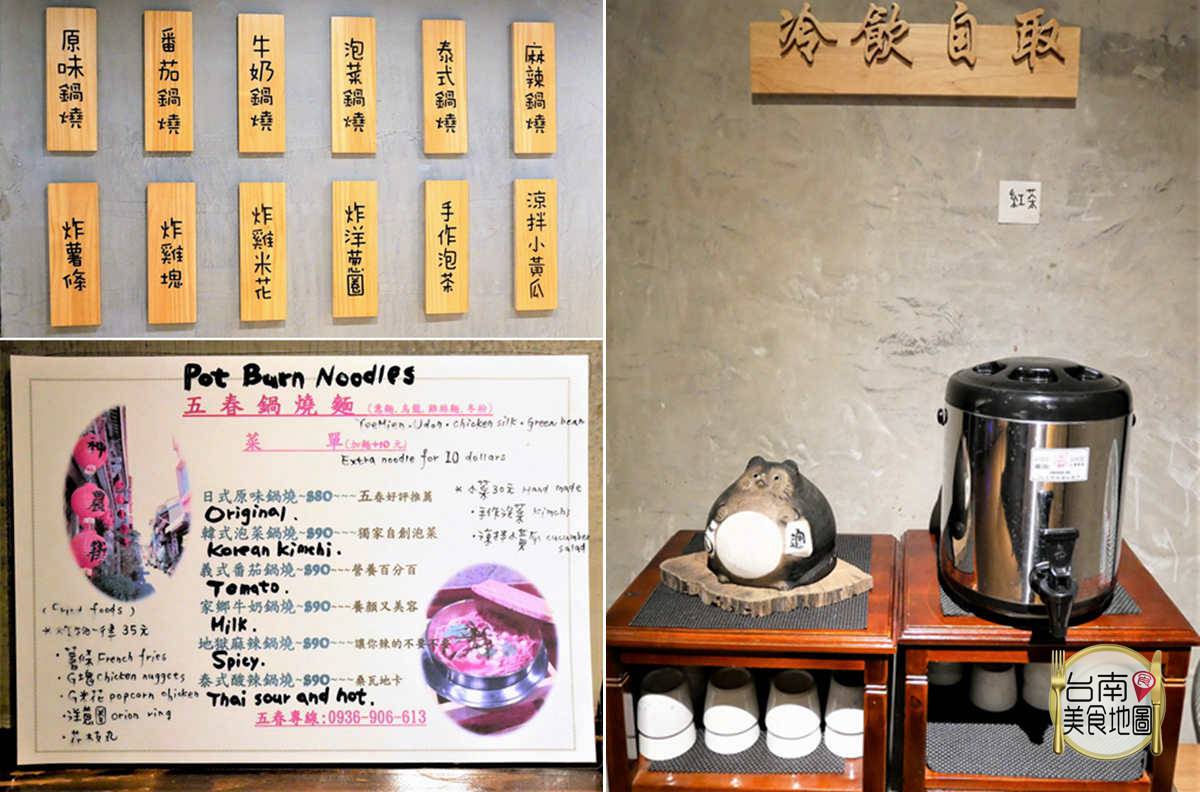 原味鍋燒
番茄鍋燒
牛奶鍋燒
泡菜鍋燒
泰式鍋燒
麻辣鍋燒
炸薯條
炸雞塊
炸雞米花
炸洋蔥圈
手作泡菜
涼拌小黃瓜
冷飲自取
紅茶
Pot Burn Noodles
五春鍋燒麵(意麵.烏龍.雞絲麵.冬粉)
YeeMien.Udon.chicken silk.Green bean
菜單(加麵+10元)
Extra noodle for 10 dollars
日式原味鍋燒~$80~~~五春好評推薦
Original.
韓式泡菜鍋燒~$90~~~獨家自創泡菜
Korean Kimchi.
義式番茄鍋燒~$90~~~營養百分百
Tomato.
家鄉牛奶鍋燒~$90~~~養顏又美容
Milk.
地獄麻辣鍋燒~$90~~~讓你辣的不要不
Spicy.
泰式酸辣鍋燒~$90~~~桑瓦地卡
Thai sour and hot.
五春專線:0936-906-613
*小菜30元 Hand made
·手作泡菜 Kimchi
·涼拌小黃瓜 cucumber
salad
foods)
35元
·薯條 French fries
·G塊 Chicken nuggets
·G米花 popcorn chicken
·洋蔥圈 onion ring
·花枝丸
神農街
台南
美食地圖
食